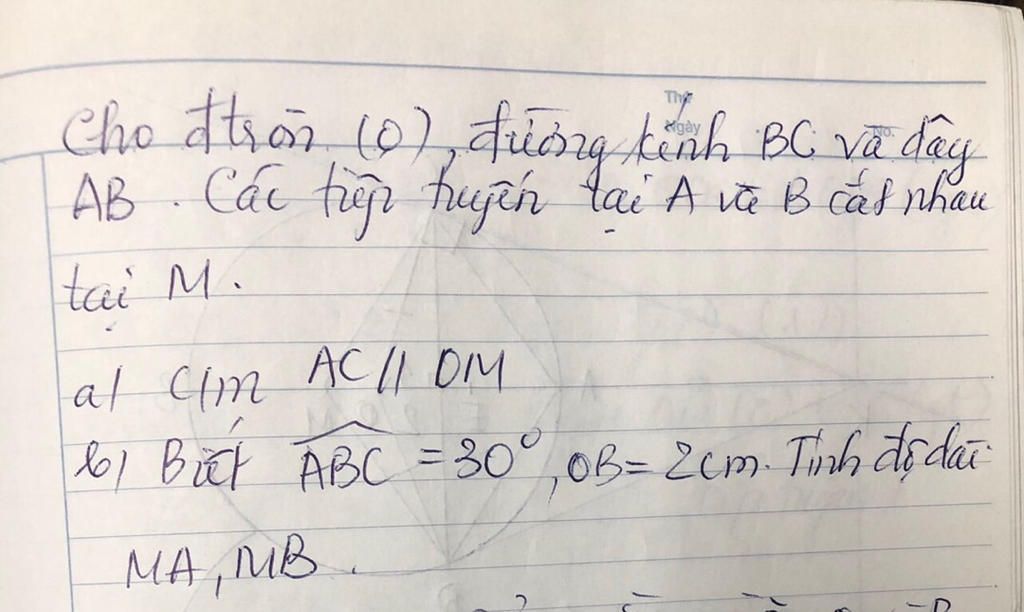 Thứ
Ngày
No.
Cho đtròn (O), đường kính BC và dây
AB. Các tiếp tuyến tại A và B cắt nhau
tại M.
a/ C/m AC // OM
b/ Biết ABC = 30°, OB = 2cm. Tính độ dài
MA, MB.